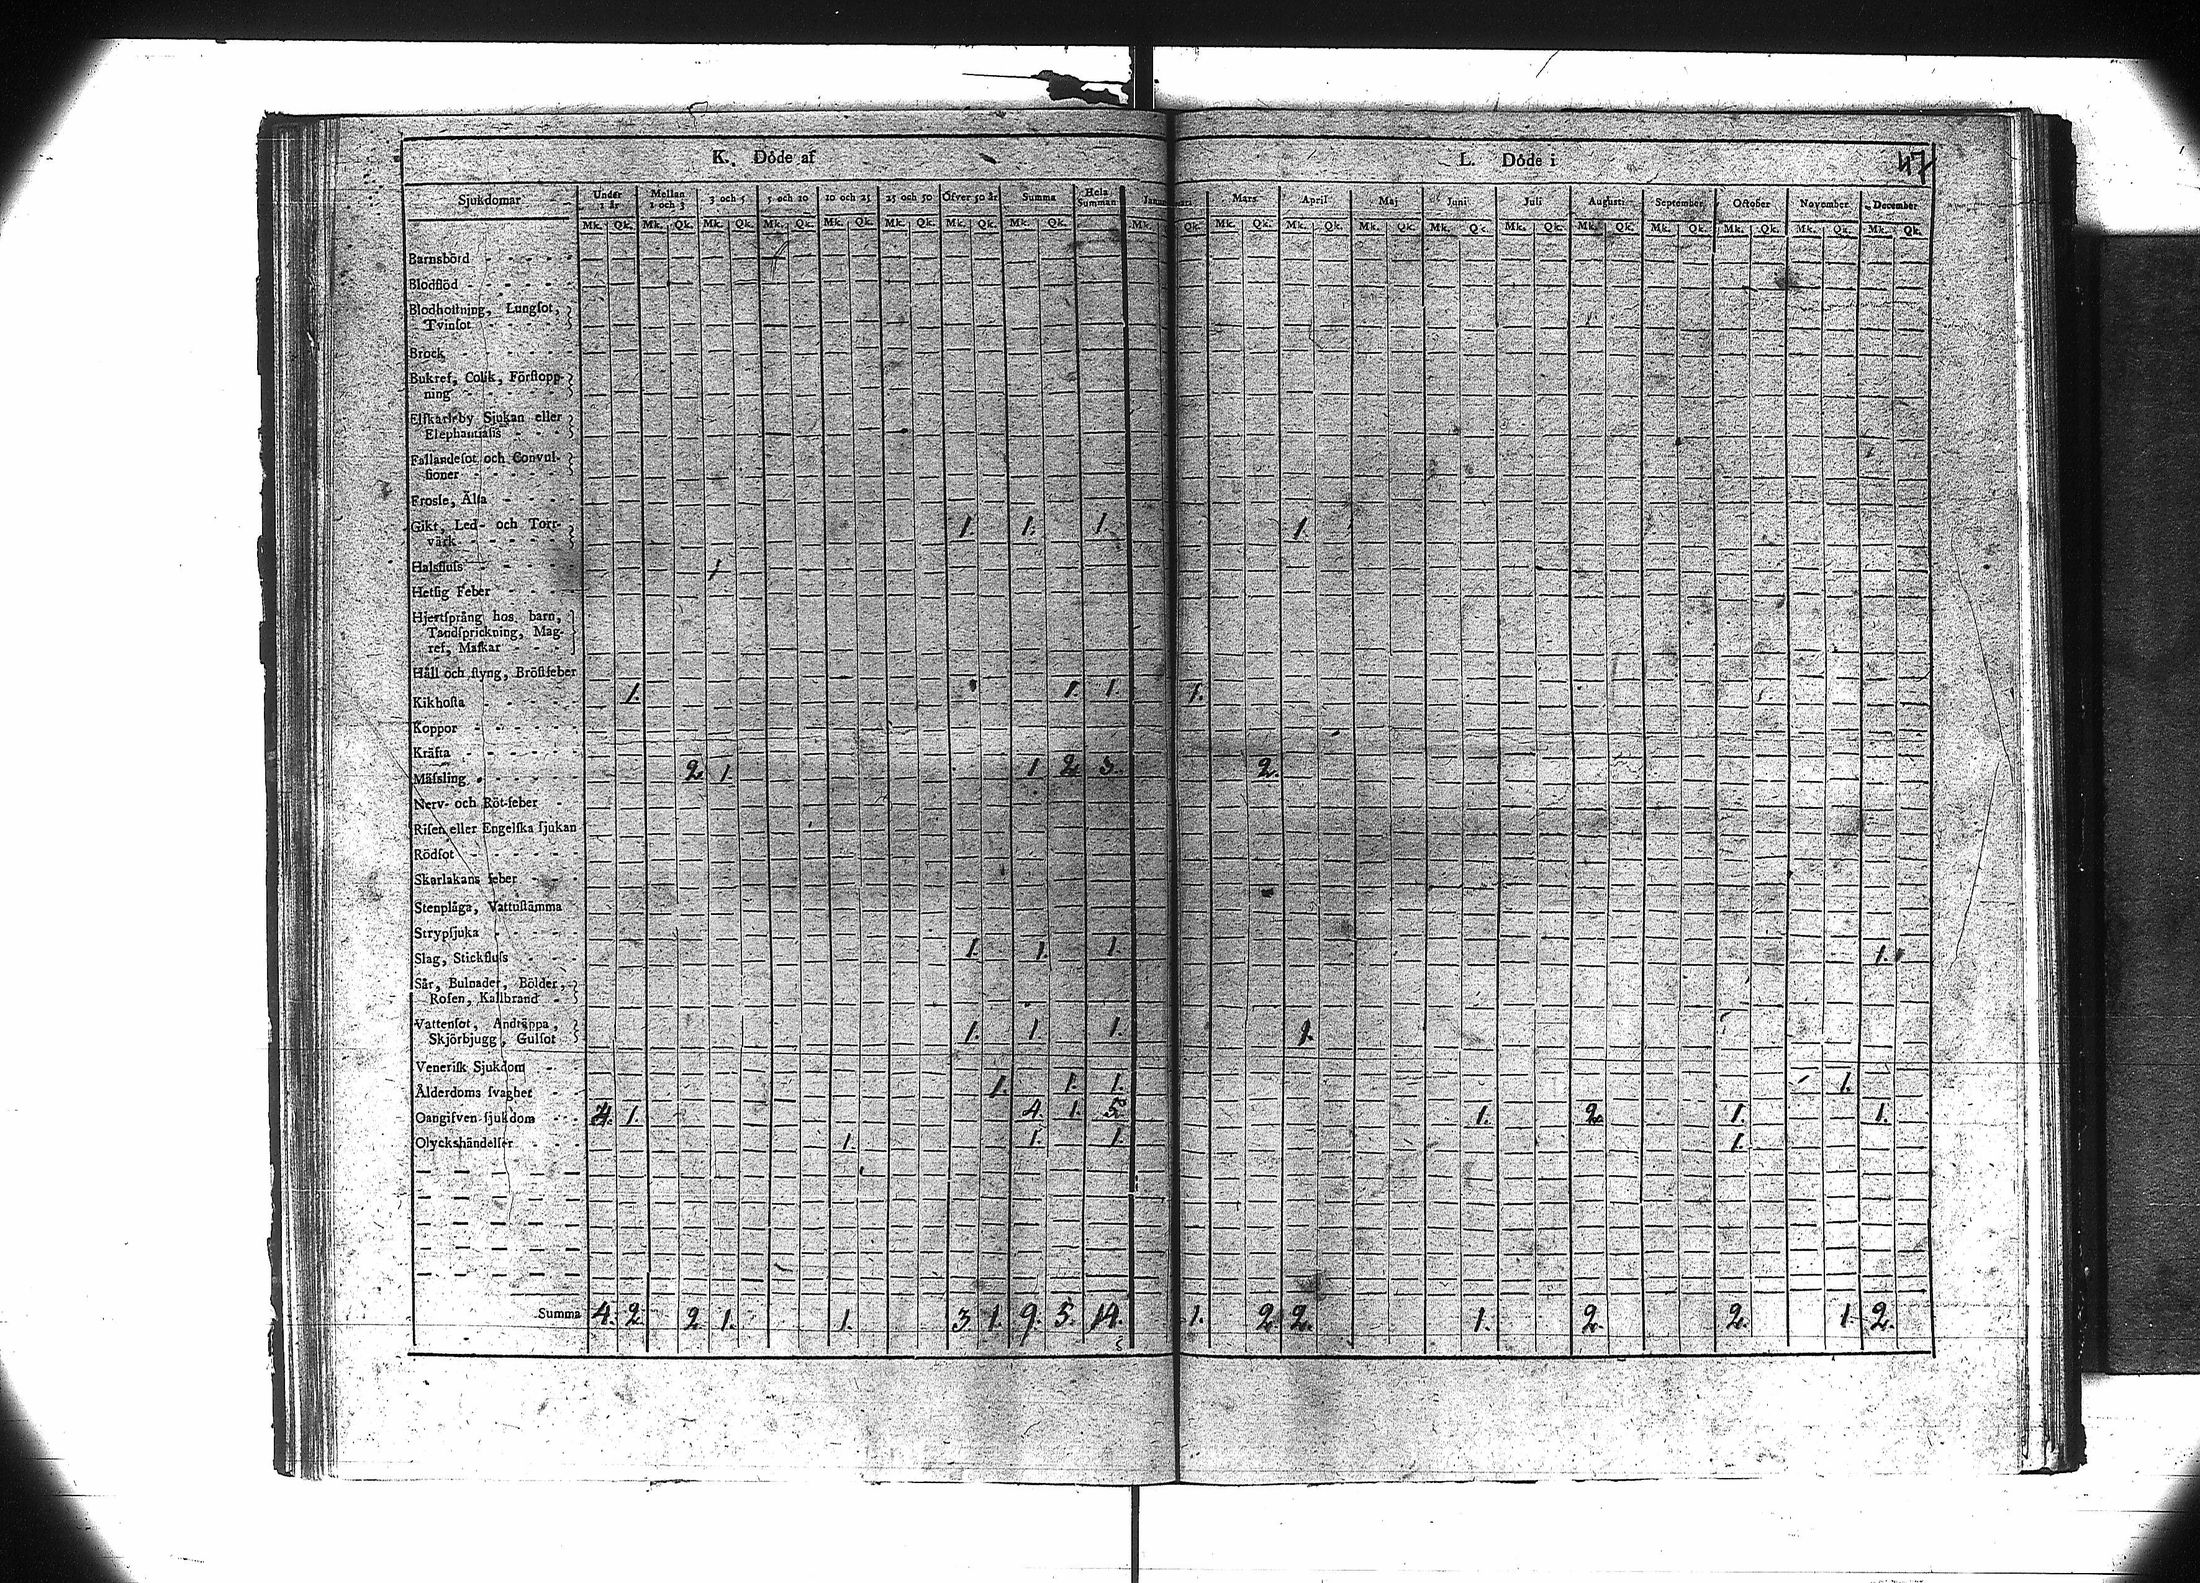 K. Döde af
L. Döde i
47
Sjukdomar Under 1 år Mellan 1 och 3 3 och 5 5 och 10 10 och 25 25 och 50 Öfver 50 år Summa Hela Summan Januari Mars April Maj Juni Juli Augusti September October November December
Mk. Qk. Mk. Qk. Mk. Qk. Mk. Qk. Mk. Qk. Mk. Qk. Mk. Qk. Mk. Qk. Mk. Qk. Mk. Qk. Mk. Qk. Mk. Qk. Mk. Qk. Mk. Qk. Mk. Qk. Mk. Qk. Mk. Qk. Mk. Qk. Mk. Qk.
Barnsbörd
Blodflöd
Blodhoſtning, Lungſot,
Tvinſot
Brock
Bukref, Colik, Förſtopp-
ning
Elfkarleby Sjukan eller
Elephantiaſis
Fallandeſot och Convul-
ſioner
Froſſe, Älta
Gikt, Led- och Torr- 1. 1. 1. 1.
värk
Halsfluſs 1
Hetſig Feber
Hjertſprång hos barn,
Tandſprickning, Mag-
ref, Maſkar
Håll och ſtyng, Bröſtfeber
Kikhoſta 1. 1. 1. 1.
Koppor
Kräfta
Mäſsling 2 1. 1 2 3. 2.
Nerv- och Röt-feber
Riſen eller Engelſka ſjukan
Rödſot
Skarlakans feber
Stenplåga, Vattuſtämma
Strypſjuka
Slag, Stickfluſs 1. 1. 1. 1.
Sår, Bulnader, Bölder,
Roſen, Kallbrand
Vattenſot, Andtäppa,
Skjörbjugg, Gulſot 1. 1. 1. 1.
Veneriſk Sjukdom
Ålderdoms ſvaghet 1. 1. 1. 1.
Oangifven ſjukdom 4. 1. 4. 1. 5. 1. 2 1. 1.
Olyckshändelſer 1. 1. 1. 1.
Summa 4. 2. 2 1. 1. 3. 1. 9. 5. 14. 1. 2 2. 1. 2. 2. 1. 2.